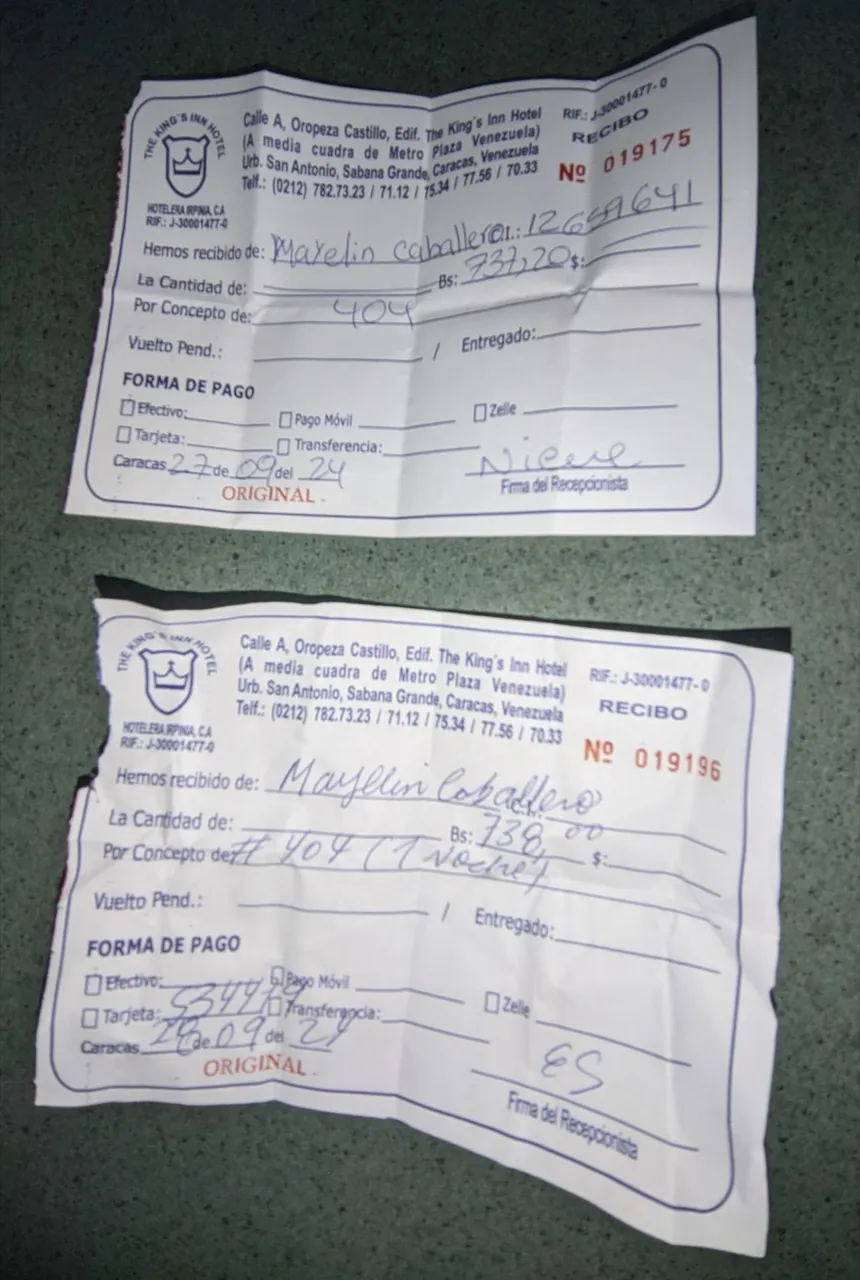 THE KING'S INN HOTEL
HOTELERA IRPINIA, C.A
RIF.: J-30001477-0
Calle A, Oropeza Castillo, Edif. The King's Inn Hotel
(A media cuadra de Metro Plaza Venezuela)
Urb. San Antonio, Sabana Grande, Caracas, Venezuela
Telf.: (0212) 782.73.23 / 71.12 / 75.34 / 77.56 / 70.33
RIF.: J-30001477-0
RECIBO
Nº 019175
Hemos recibido de: Mayelin Caballero C.I.: 12659641
La Cantidad de: Bs: 737,20 $:
Por Concepto de: 404
Vuelto Pend.: / Entregado:
FORMA DE PAGO
Efectivo: Pago Móvil Zelle
Tarjeta: Transferencia:
Caracas 27 de 09 del 24
Firma del Recepcionista
ORIGINAL
THE KING'S INN HOTEL
HOTELERA IRPINIA, C.A
RIF.: J-30001477-0
Calle A, Oropeza Castillo, Edif. The King's Inn Hotel
(A media cuadra de Metro Plaza Venezuela)
Urb. San Antonio, Sabana Grande, Caracas, Venezuela
Telf.: (0212) 782.73.23 / 71.12 / 75.34 / 77.56 / 70.33
RIF.: J-30001477-0
RECIBO
Nº 019196
Hemos recibido de: Mayllin Caballero C.I.:
La Cantidad de: Bs: 738,00 $:
Por Concepto de: # 404 (1 Noche)
Vuelto Pend.: / Entregado:
FORMA DE PAGO
Efectivo: Pago Móvil Zelle
Tarjeta: Transferencia:
Caracas 28 de 09 del 24
ES
Firma del Recepcionista
ORIGINAL